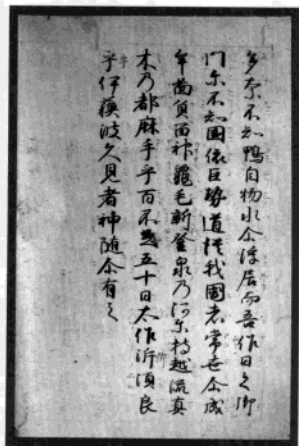 多奈不知鴨自物水尒浮居而吾作日之御
門尒不知國依巨勢道従我國者常世尒成
牟啚負留神龜毛新登泉乃河尒持越流真
木乃都麻手乎百不足五十日太作泝須良
乎伊蘓波久見者神随尒有之